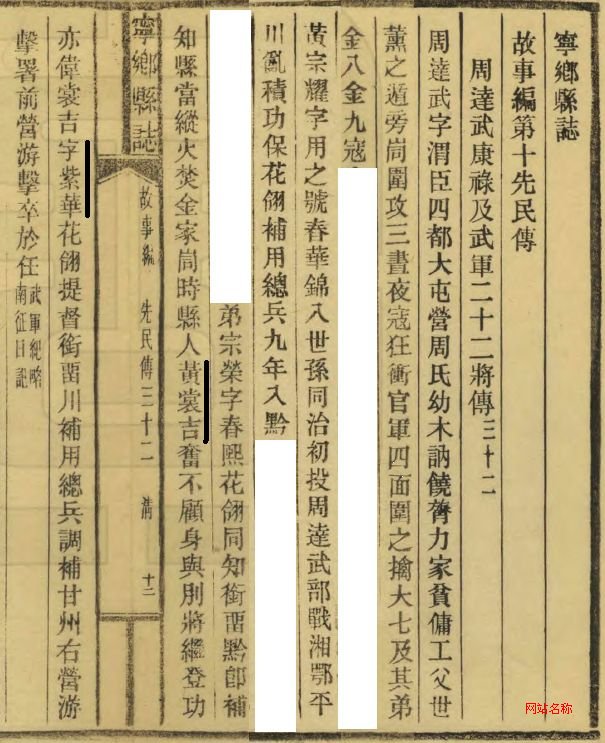 寧鄉縣誌
故事編第十先民傳
周達武康祿及武軍二十二將傳三十二
周達武字渭臣四都大屯營周氏幼木訥饒膂力家貧傭工父世
薰之遁旁峝圍攻三晝夜寇狂衝官軍四面圍之擒大七及其弟
金八金九寇
黃宗耀字用之號春華錦入世孫同治初投周達武部戰湘鄂平
川亂積功保花翎補用總兵九年入黔
弟宗榮字春熙花翎同知銜畱黔卽補
知縣當縱火焚金家峝時縣人黃裳吉奮不顧身與別將繼登功
寧鄉縣誌
故事編 先民傳三十二 清 十二
亦偉裳吉字紫華花翎提督銜畱川補用總兵調補甘州右營游
擊署前營游擊卒於任武軍紀略
南征日記
网站名称